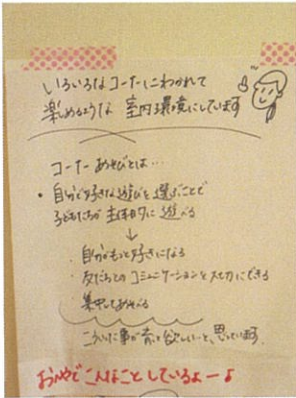 いろいろなコーナーにわかれて
楽しめるような 室内環境にしています
コーナーあそびとは…
・自分で好きな遊びを選ぶことで
子どもたちが 主体的に 遊べる
↓
・自分がもっと好きになる
・友だちとのコミュニケーションを大切にできる
・集中してあそべる
こういった事が育って欲しい…と、思っています
おへやでこんなことしているよーよ